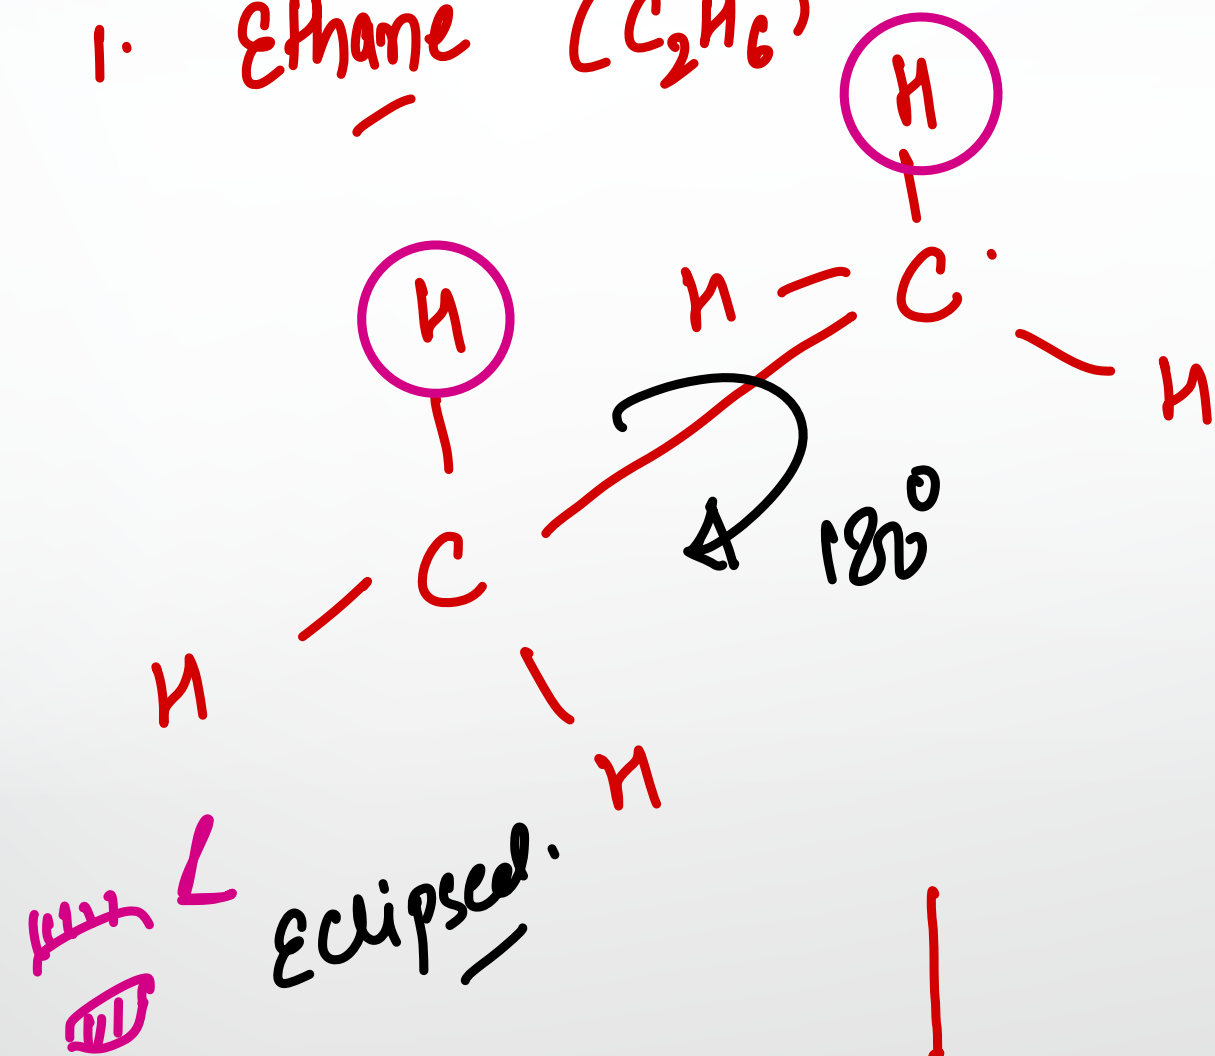 1. Ethane (C2H6)
H
H C
H H
180°
C
H
H
Eclipsed.